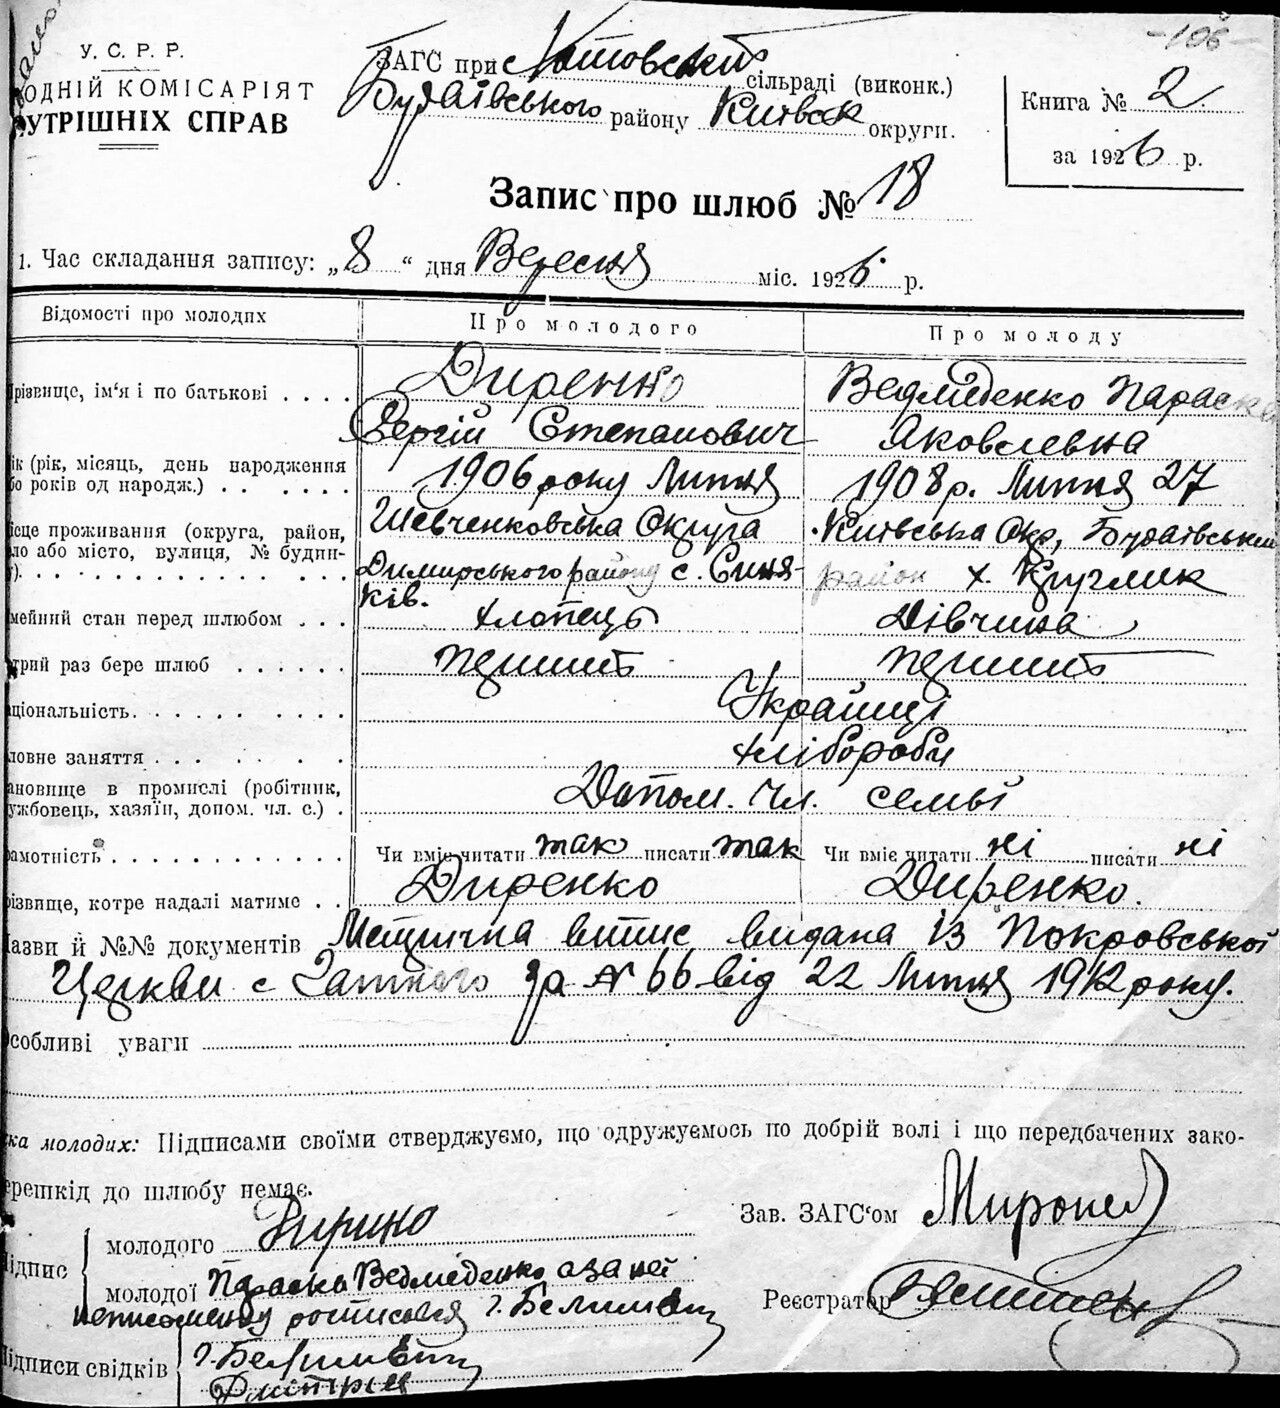 -106-
У. С. Р. Р.
ОДНІЙ КОМІСАРІЯТ
УТРІШНІХ СПРАВ
ЗАГС при сільраді (виконк.)
Будаївського району Київськ округи.
Книга № 2.
за 1926 р.
Запис про шлюб № 18
1. Час складання запису: „8“ дня Вересня міс. 1926 р.
Відомості про молодих Про молодого Про молоду
різвище, ім'я і по батькові . . . . Диренко Ведмеденко Параска
Сергій Степанович Яковлевна
ік (рік, місяць, день народження
бо років од народж.) . . . . . . 1906 року Липня 1908 р. Липня 27
ісце проживання (округа, район, Шевченковська Округа Київська Окр, Будаївський
ло або місто, вулиця, № будин-
Димирського району с. Синя- район х. Круглик
ків.
мейний стан перед шлюбом . . . хлопець Дівчина
трий раз бере шлюб . . . . . . перший перший
ціональність. . . . . . . . . . Українці
ловне заняття . . . . . . . хлібороби
ановище в промислі (робітник,
ужбовець, хазяїн, допом. чл. с.) . Допом. чл. семьї
рамотність . . . . . . . . . . . . Чи вміє читати так писати так Чи вміє читати ні писати ні
різвище, котре надалі матиме . . Диренко Диренко.
азви й №№ документів Метрична випис видана із Покровської
Церкви с Гатного за № 66 від 22 Липня 1912 року.
собливі уваги
ка молодих: Підписами своїми стверджуємо, що одружуємось по добрій волі і що передбачених зако-
ерешкід до шлюбу немає.
ідпис
молодого Диренко
молодої Параска Ведмеденко а за неї
неписьменну росписався
Зав. ЗАГС'ом
Реєстратор
ідписи свідків